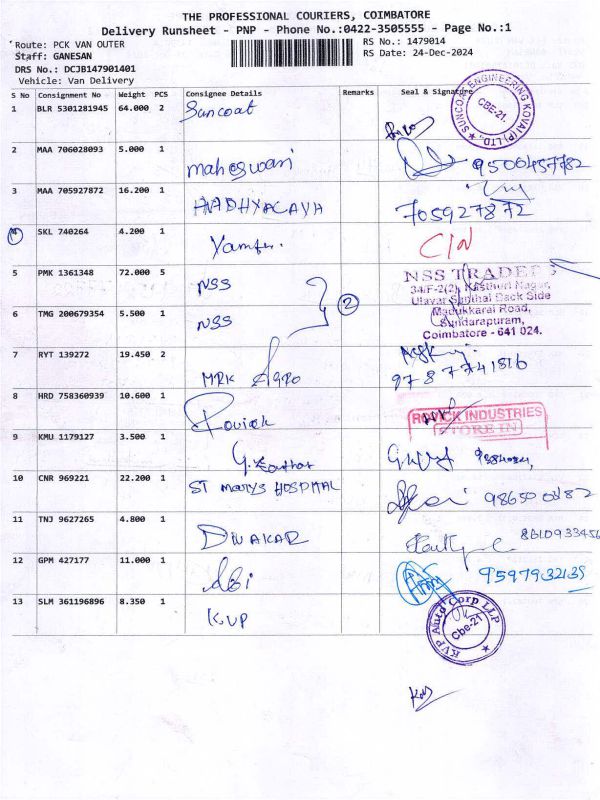 THE PROFESSIONAL COURIERS, COIMBATORE
Delivery Runsheet - PNP - Phone No.:0422-3505555 - Page No.:1
Route: PCK VAN OUTER
RS No.: 1479014
Staff: GANESAN
RS Date: 24-Dec-2024
DRS No.: DCJB147901401
Vehicle: Van Delivery
S No Consignment No Weight PCS Consignee Details Remarks Seal & Signature
1 BLR 5301281945 64.000 2 Suncoat
CBE-21.
2 MAA 706028093 5.000 1 maheswari 9500457782
3 MAA 705927872 16.200 1 705927872
4 SKL 740264 4.200 1 CIN
5 PMK 1361348 72.000 5 NSS
2
NSS TRADE
34/F-2(2), Kasthuri Nagar,
Back Side
Madukkarai Road,
Sundarapuram,
Coimbatore - 641 024.
6 TMG 200679354 5.500 1 NSS
7 RYT 139272 19.450 2 MRK Agro
9787741816
8 HRD 758360939 10.600 1
INDUSTRIES
STORE IN
9 KMU 1179127 3.500 1
10 CNR 969221 22.200 1 ST MARYS HOSPITAL
11 TNJ 9627265 4.800 1 DIWAKAR
12 GPM 427177 11.000 1 9597932139
13 SLM 361196896 8.350 1 KVP
KVP Auto Corp LLP
Cbe-21